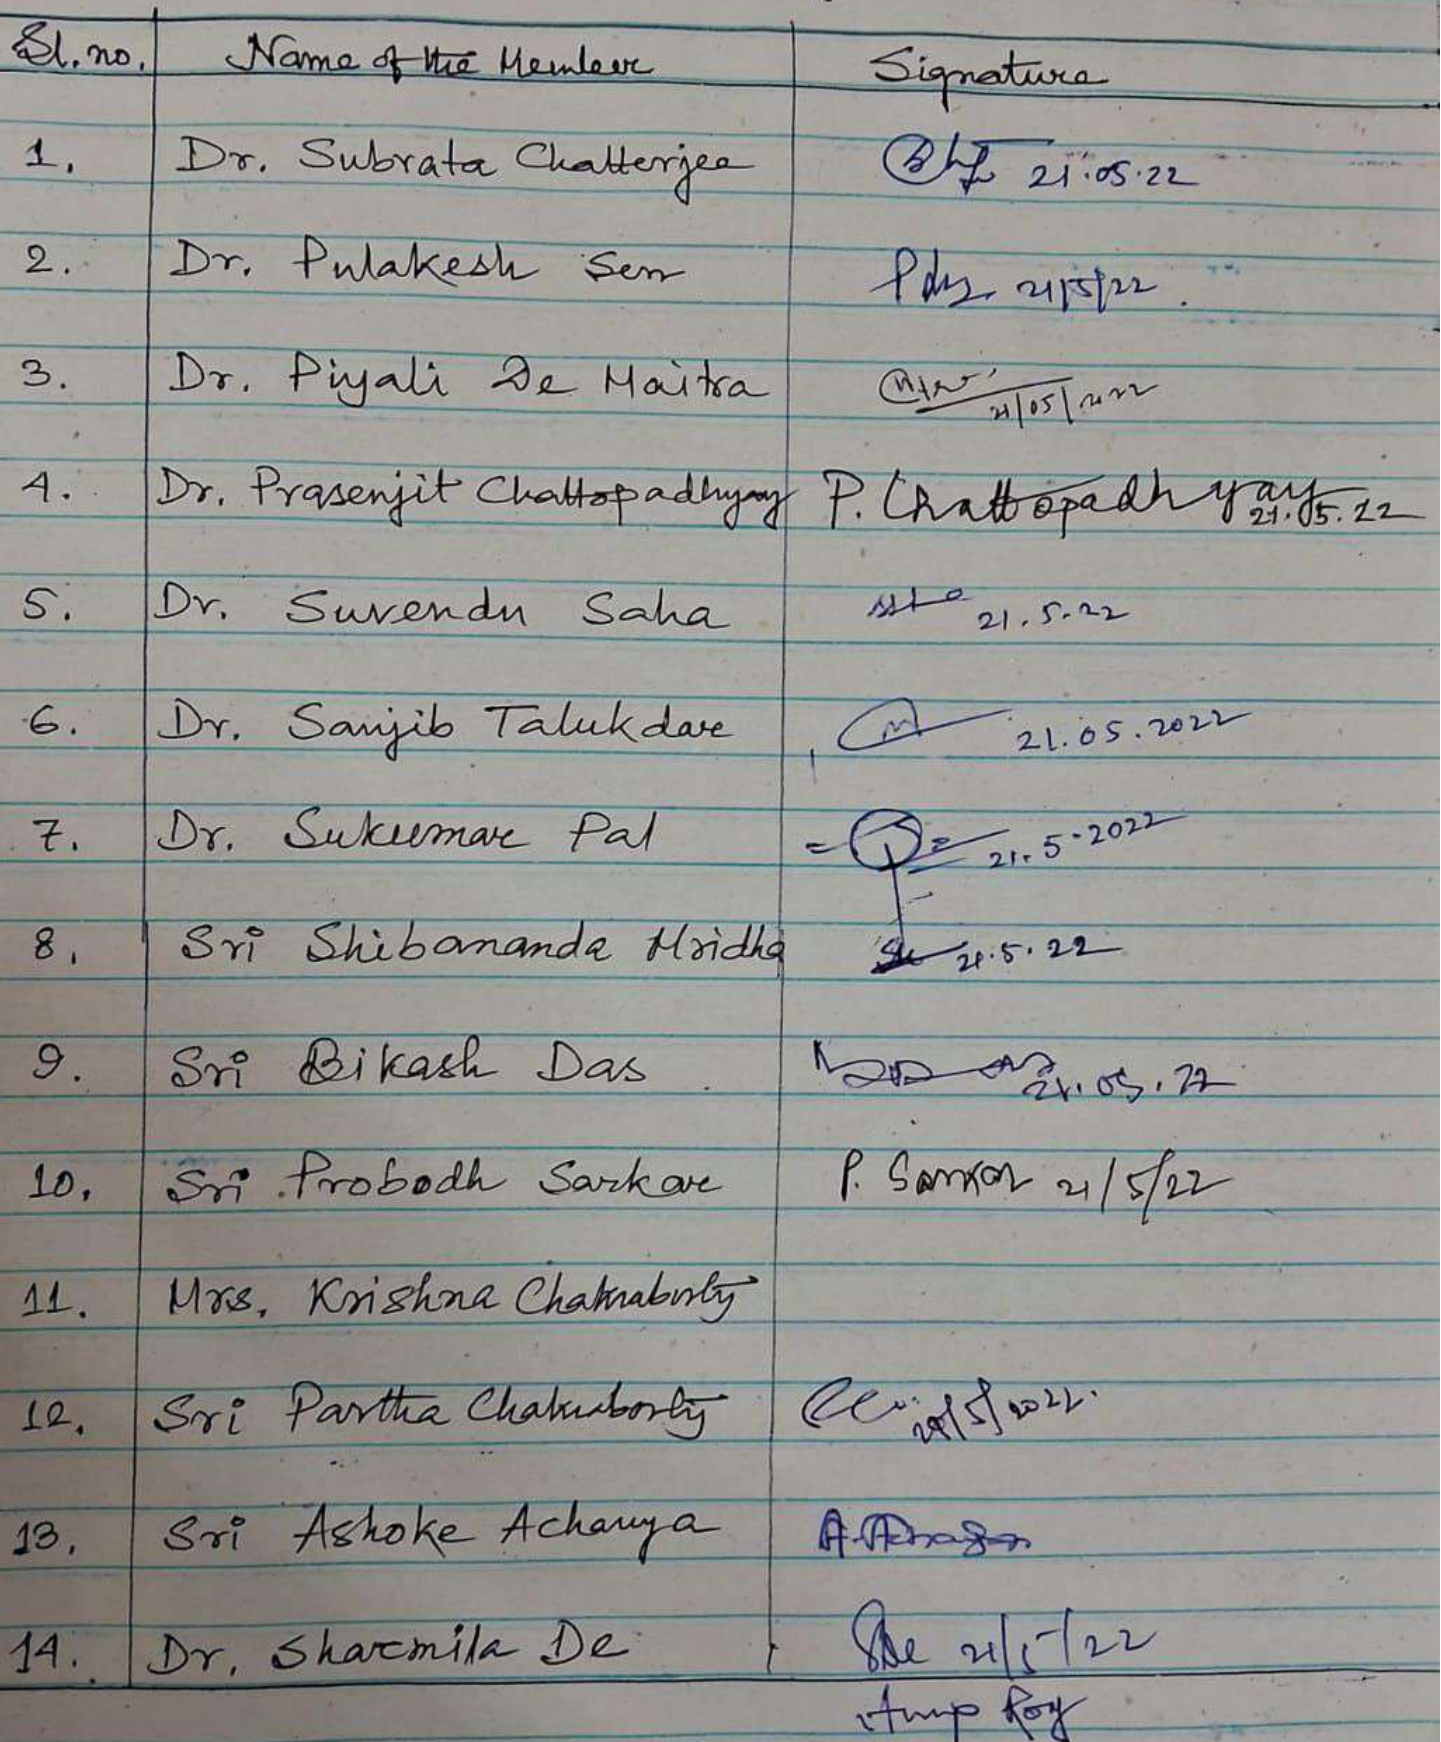 Sl. no. Name of the Member Signature
1. Dr. Subrata Chatterjee 21.05.22
2. Dr. Pulakesh Sen 21/5/22
3. Dr. Piyali De Maitra 21/05/2022
4. Dr. Prasenjit Chattopadhyay P. Chattopadhyay 21.05.22
5. Dr. Suvendu Saha 21.5.22
6. Dr. Sanjib Talukdar 21.05.2022
7. Dr. Sukumar Pal 21.5.2022
8. Sri Shibananda Mridha 21.5.22
9. Sri Bikash Das 21.05.22
10. Sri Probodh Sarkar P. Sarkar 21/5/22
11. Mrs. Krishna Chakraborty
12. Sri Partha Chakraborty 21/5/2022.
13. Sri Ashoke Acharya A. Acharya
14. Dr. Sharmila De SDe 21/5/22
Anup Roy